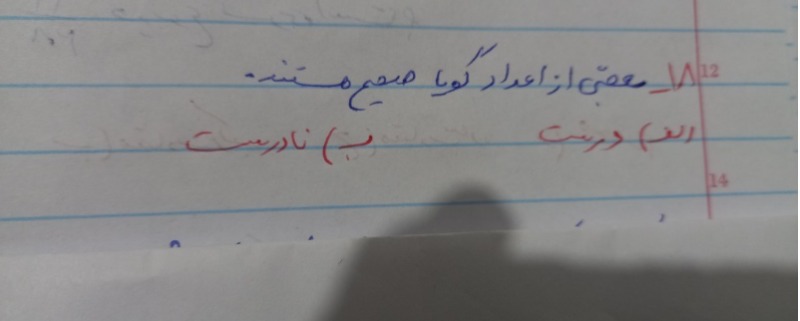 ۱۸_ بعضی از اعداد گویا صحیح هستند.
الف) درست ب) نادرست
12
14